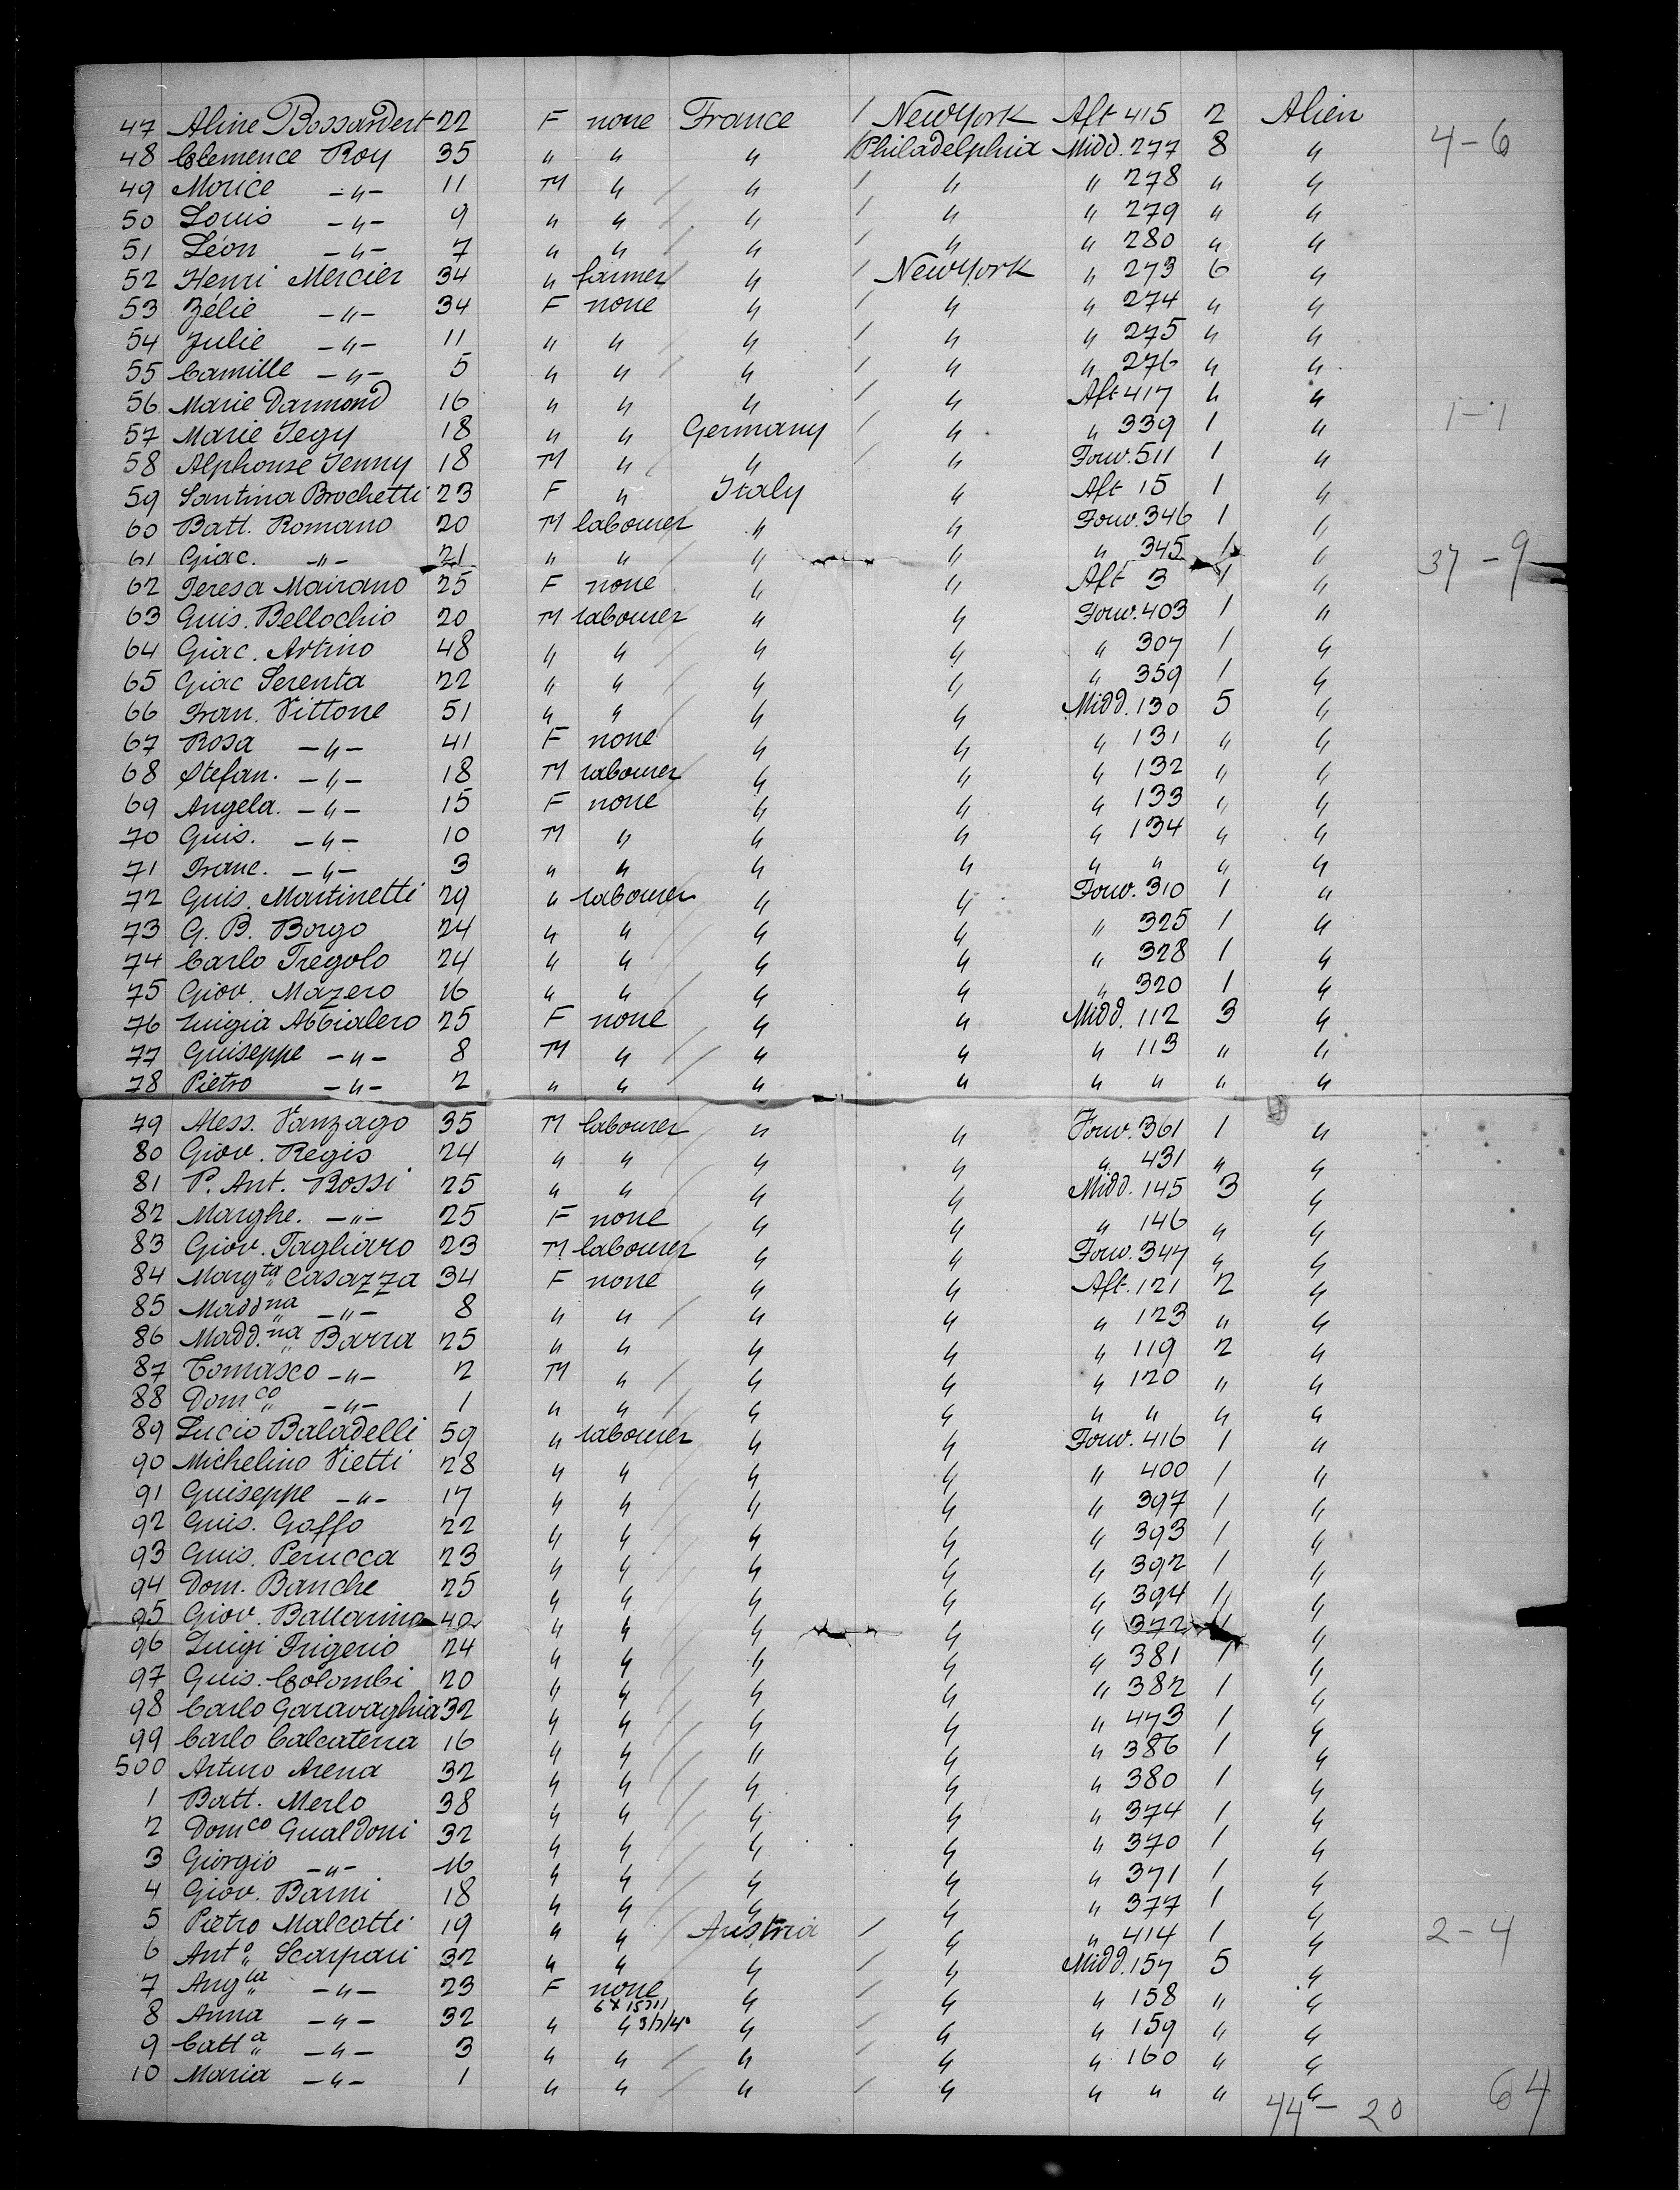 47 Aline Bossardert 22 F none France / New York Aft 415 2 Alien
48 Clemence Roy 35 " " " / Philadelphia Midd. 277 8 " 4-6
49 Morice -"- 11 M " " / " " 278 " "
50 Louis -"- 9 " " " / " " 279 " "
51 Léon -"- 7 " " " / " " 280 " "
52 Henri Mercier 34 " farmer " / New York " 273 6 "
53 Zélie -"- 34 F none " / " " 274 " "
54 Julie -"- 11 " " " / " " 275 " "
55 Camille -"- 5 " " " / " " 276 " "
56 Marie Darmond 16 " " " / " Aft 417 " "
57 Marie Jegy 18 " " Germany / " " 339 1 " 1-1
58 Alphonse Jenny 18 M " " / " Forw. 511 1 "
59 Santina Brochetti 23 F " Italy " Aft 15 1 "
60 Batt. Romano 20 M labourer " " Forw. 346 1 "
61 Giac. -"- 21 " " " " " 345 1 " 37-9
62 Teresa Mairano 25 F none " " Aft 3 1 "
63 Guis. Bellochio 20 M labourer " " Forw. 403 1 "
64 Giac. Artino 48 " " " " " 307 1 "
65 Giac Serenta 22 " " " " " 359 1 "
66 Fran. Vittone 51 " " " " Midd. 130 5 "
67 Rosa -"- 41 F none " " " 131 " "
68 Stefan. -"- 18 M labourer " " " 132 " "
69 Angela. -"- 15 F none " " " 133 " "
70 Guis. -"- 10 M " " " " 134 " "
71 Franc. -"- 3 " " " " " " " "
72 Guis. Martinetti 29 " labourer " " Forw. 310 1 "
73 G. B. Borgo 24 " " " " " 325 1 "
74 Carlo Tregolo 24 " " " " " 328 1 "
75 Giov. Mazero 16 " " " " " 320 1 "
76 Luigia Abbialero 25 F none " " Midd. 112 3 "
77 Guiseppe -"- 8 M " " " " 113 " "
78 Pietro -"- 2 " " " " " " " "
79 Aless. Vanzago 35 M labourer " " Forw. 361 1 "
80 Giov. Regis 24 " " " " " 431 " "
81 P. Ant. Rossi 25 " " " " Midd. 145 3 "
82 Marghe. -"- 25 F none " " " 146 " "
83 Giov. Tagliaro 23 M labourer " " Forw. 347 " "
84 Margta Casazza 34 F none " " Aft. 121 2 "
85 Maddna -"- 8 " " " " " 123 " "
86 Madd.na Barra 25 " " " " " 119 2 "
87 Tomasco -"- 2 M " " " " 120 " "
88 Domco -"- 1 " " " " " " " "
89 Lucio Baladelli 59 " labourer " " Forw. 416 1 "
90 Michelino Vietti 28 " " " " " 400 1 "
91 Guiseppe -"- 17 " " " " " 397 1 "
92 Guis. Goffo 22 " " " " " 393 1 "
93 Guis. Perucca 23 " " " " " 392 1 "
94 Dom. Banche 25 " " " " " 394 1 "
95 Giov. Ballarina 40 " " " " " 372 1 "
96 Luigi Frigerio 24 " " " " " 381 1 "
97 Guis. Colombi 20 " " " " " 382 1 "
98 Carlo Garavaghia 32 " " " " " 473 1 "
99 Carlo Calcaterra 16 " " " " " 386 1 "
500 Arturo Arena 32 " " " " " 380 1 "
1 Batt. Merlo 38 " " " " " 374 1 "
2 Domco Gualdoni 32 " " " " " 370 1 "
3 Giorgio -"- 16 " " " " " 371 1 "
4 Giov. Barni 18 " " " " " 377 1 "
5 Pietro Malcotti 19 " " Austria / " " 414 1 " 2-4
6 Anto Scarpari 32 " " " / " Midd. 157 5 "
7 Angla -"- 23 F none " / " " 158 " "
6 X 15711
8 Anna -"- 32 " " 3/7/40 " / " " 159 " "
9 Catta -"- 3 " " " / " " 160 " "
10 Maria -"- 1 " " " / " " " " "
44-20 64